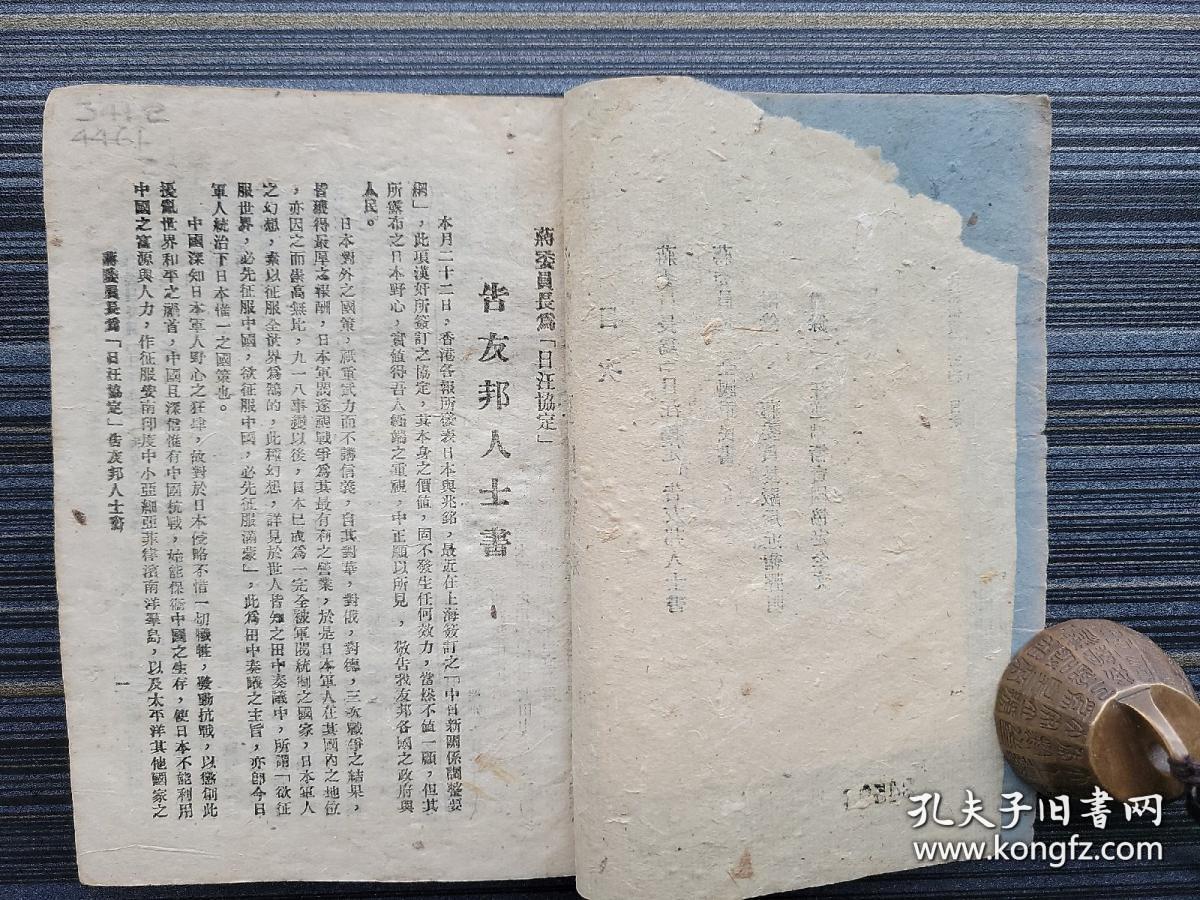 3412
4461
蔣委員長爲「日汪協定」
告友邦人士書
本月二十二日，香港各報所發表日本與兆銘，最近在上海簽訂之「中日新關係調整要
綱」，此項漢奸所簽訂之協定，其本身之價値，固不發生任何效力，當然不值一顧，但其
所露布之日本野心，實值得吾人極端之重視，中正願以所見，敬告我友邦各國之政府與
人民。
日本對外之國策，祇重武力而不講信義，自其對華，對俄，對德，三次戰爭之結果，
皆獲得最厚之報酬，日本軍閥遂視戰爭爲其最有利之營業，於是日本軍人在其國內之地位
，亦因之而崇高無比，九一八事變以後，日本已成爲一完全被軍閥統制之國家，日本軍人
之幻想，素以征服全世界爲鵠的，此種幻想，詳見於世人皆知之田中奏議中，所謂「欲征
服世界，必先征服中國，欲征服中國，必先征服滿蒙」，此爲田中奏議之主旨，亦卽今日
軍人統治下日本惟一之國策也。
中國深知日本軍人野心之狂肆，故對於日本侵略不惜一切犧牲，發動抗戰，以懲創此
擾亂世界和平之禍首，中國且深信惟有中國抗戰，始能保衞中國之生存，使日本不能利用
中國之富源與人力，作征服安南印度中小亞細亞菲律濱南洋羣島，以及太平洋其他國家之
蔣委員長爲「日汪協定」告友邦人士書
一
孔夫子旧书网
www.kongfz.com